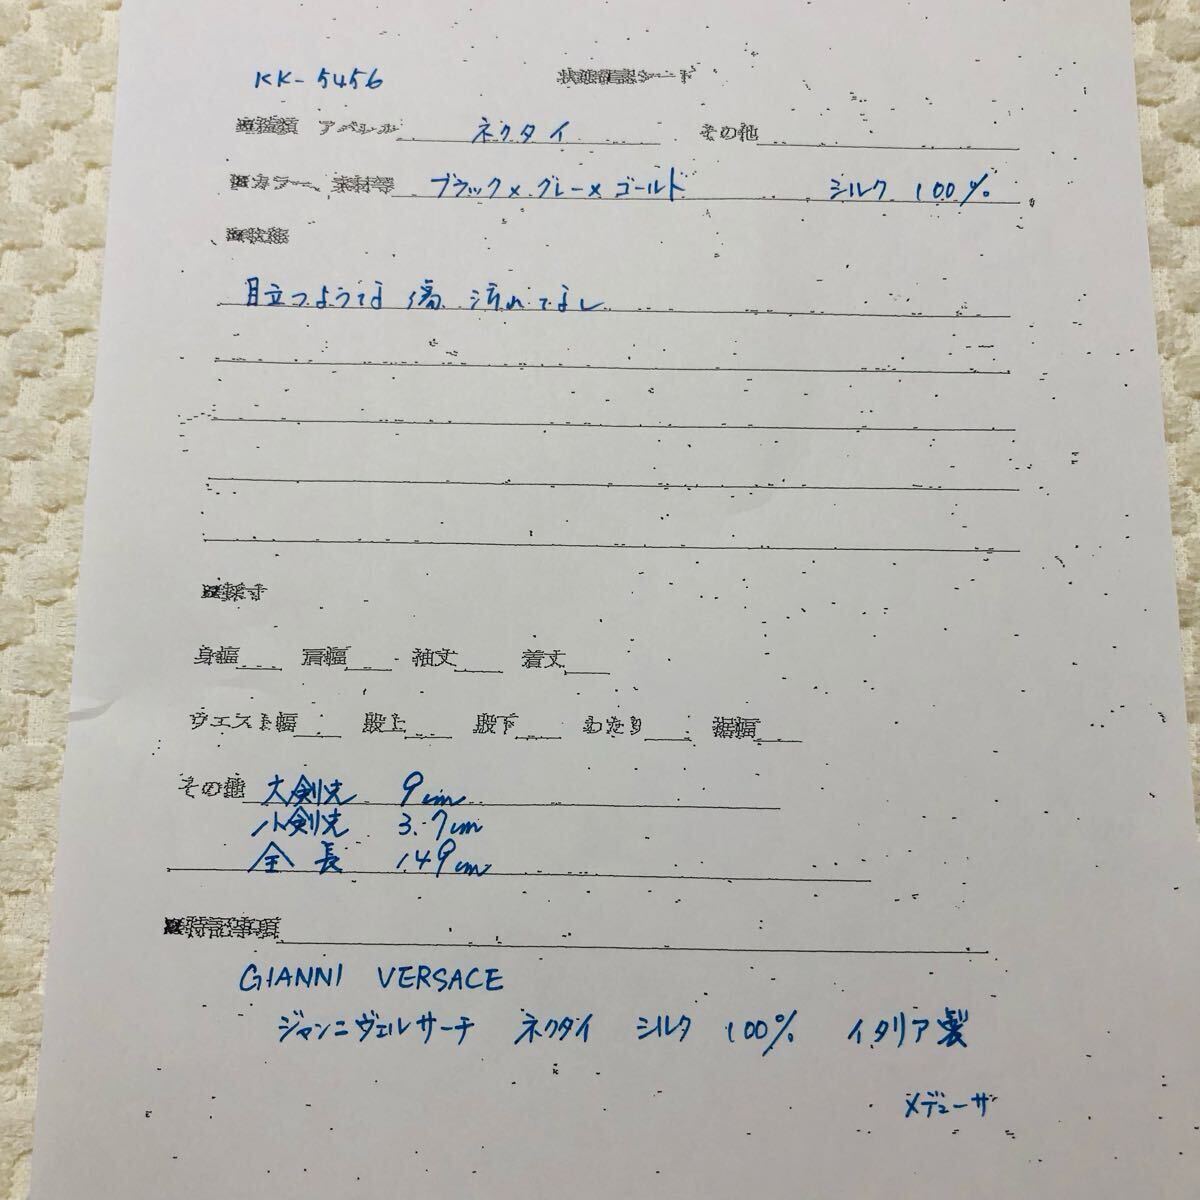 KK-5456 状態確認シート
■種類 アパレル ネクタイ その他
■カラー、素材等 ブラック×グレー×ゴールド シルク 100%
■状態
目立つような傷 汚れ なし
■採寸
身幅 肩幅 袖丈 着丈
ウエスト幅 股上 股下 わたり 裾幅
その他 大剣先 9cm
小剣先 3.7cm
全長 149cm
■特記事項
GIANNI VERSACE
ジャンニヴェルサーチ ネクタイ シルク 100% イタリア製
メデューサ